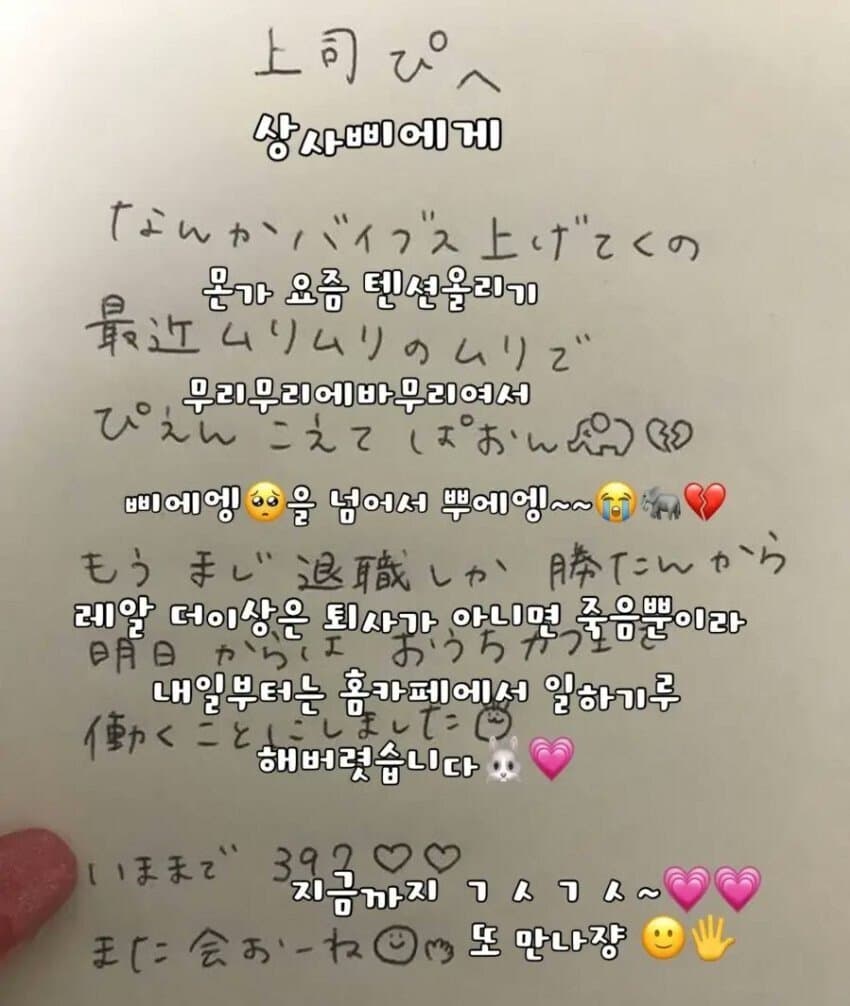 上司ぴへ
상사삐에게
なんかバイブス上げてくの
몬가 요즘 텐션올리기
最近ムリムリのムリで
무리무리에바무리여서
ぴえんこえてぱおん🐘💔
삐에엥🥺을 넘어서 뿌에엥~~😭🐘💔
もうまじ退職しか勝たんから
레알 더이상은 퇴사가 아니면 죽음뿐이라
明日からは おうちカフェで
내일부터는 홈카페에서 일하기루
働くことにしました
해버렸습니다🐰💗
いままで 392♡♡
지금까지 ㄱㅅㄱㅅ~💗💗
また会おーね☺
또 만나쟝 🙂🖐